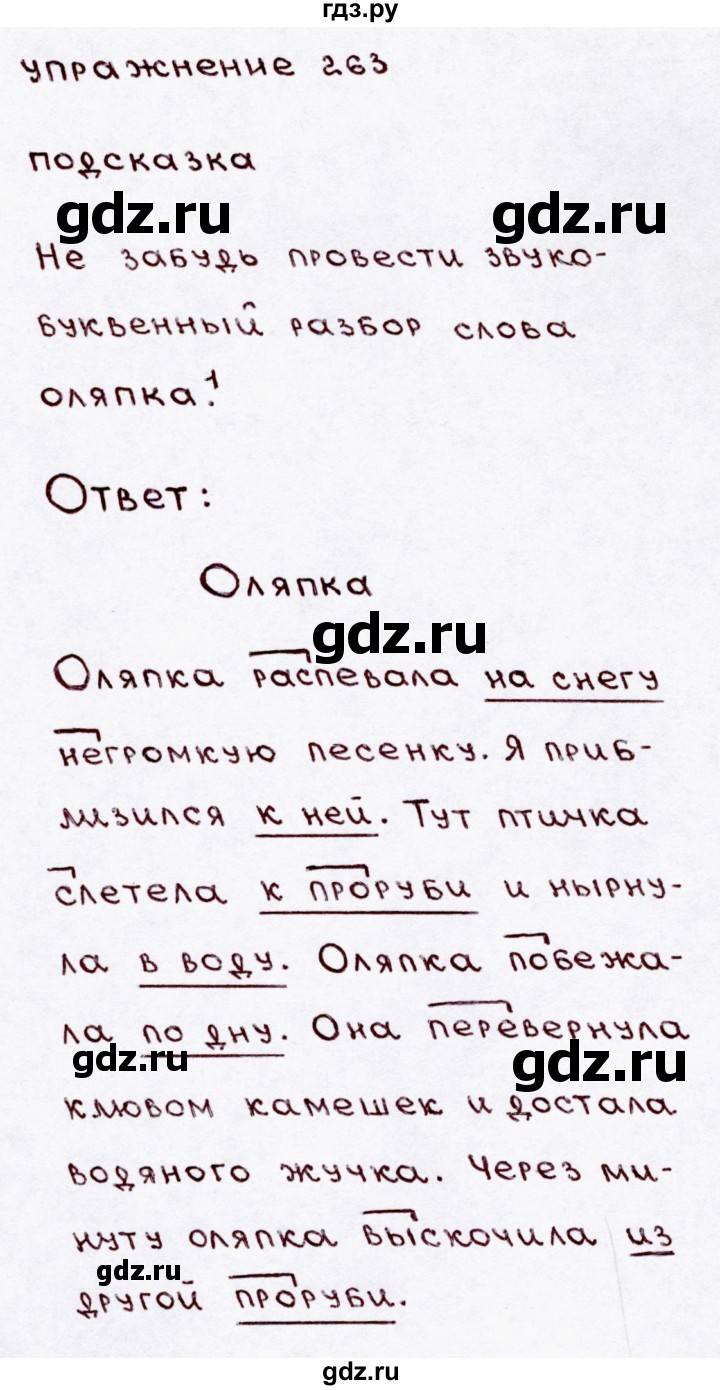 гдз.ру
упражнение 263
подсказка
gdz.ru gdz.ru
Не забудь провести звуко-
буквенный разбор слова
оляпка!
Ответ:
Оляпка
gdz.ru
Оляпка распевала на снегу
негромкую песенку. Я приб-
лизился к ней. Тут птичка
слетела к проруби и нырну-
ла в воду. Оляпка побежа-
ла по дну. Она перевернула
gdz.ru gdz.ru
клювом камешек и достала
водяного жучка. Через ми-
нуту оляпка выскочила из
gdz.ru
другой проруби.
gdz.ru